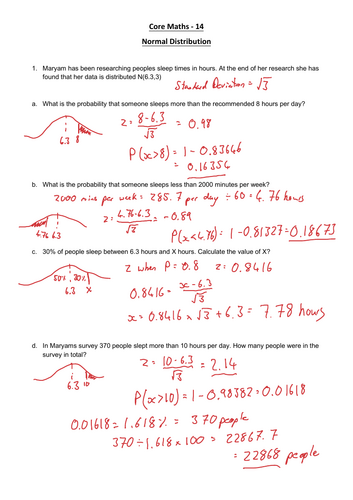 Core Maths - 14
Normal Distribution
1. Maryam has been researching peoples sleep times in hours. At the end of her research she has
found that her data is distributed N(6.3,3)
Standard Deviation = √3
a. What is the probability that someone sleeps more than the recommended 8 hours per day?
6.3 8
z = (8-6.3)/√3 = 0.98
P(x>8) = 1 - 0.83646
= 0.16354
b. What is the probability that someone sleeps less than 2000 minutes per week?
2000 mins per week = 285.7 per day ÷ 60 = 4.76 hours
4.76 6.3
z = (4.76-6.3)/√3 = -0.89
P(x<4.76) = 1 - 0.81327 = 0.18673
c. 30% of people sleep between 6.3 hours and X hours. Calculate the value of X?
50% 30%
6.3 X
z when P = 0.8 z = 0.8416
0.8416 = (x-6.3)/√3
x = 0.8416 × √3 + 6.3 = 7.78 hours
d. In Maryams survey 370 people slept more than 10 hours per day. How many people were in the
survey in total?
6.3 10
z = (10-6.3)/√3 = 2.14
P(x>10) = 1 - 0.98382 = 0.01618
0.01618 = 1.618% = 370 people
370 ÷ 1.618 × 100 = 22867.7
= 22868 people